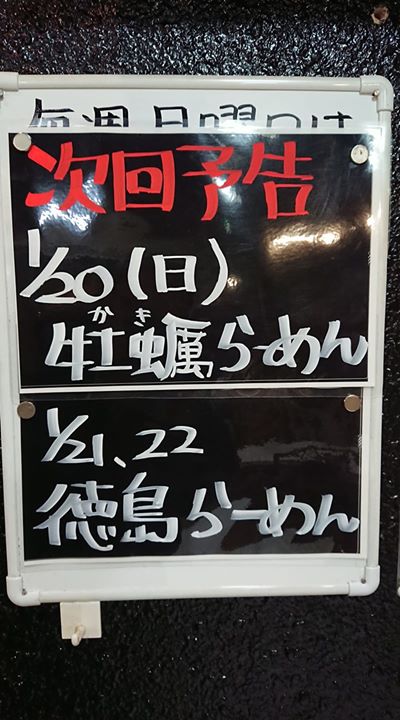 毎週日曜日は
次回予告
1/20(日)
かき
牡蠣らーめん
1/21、22
徳島らーめん